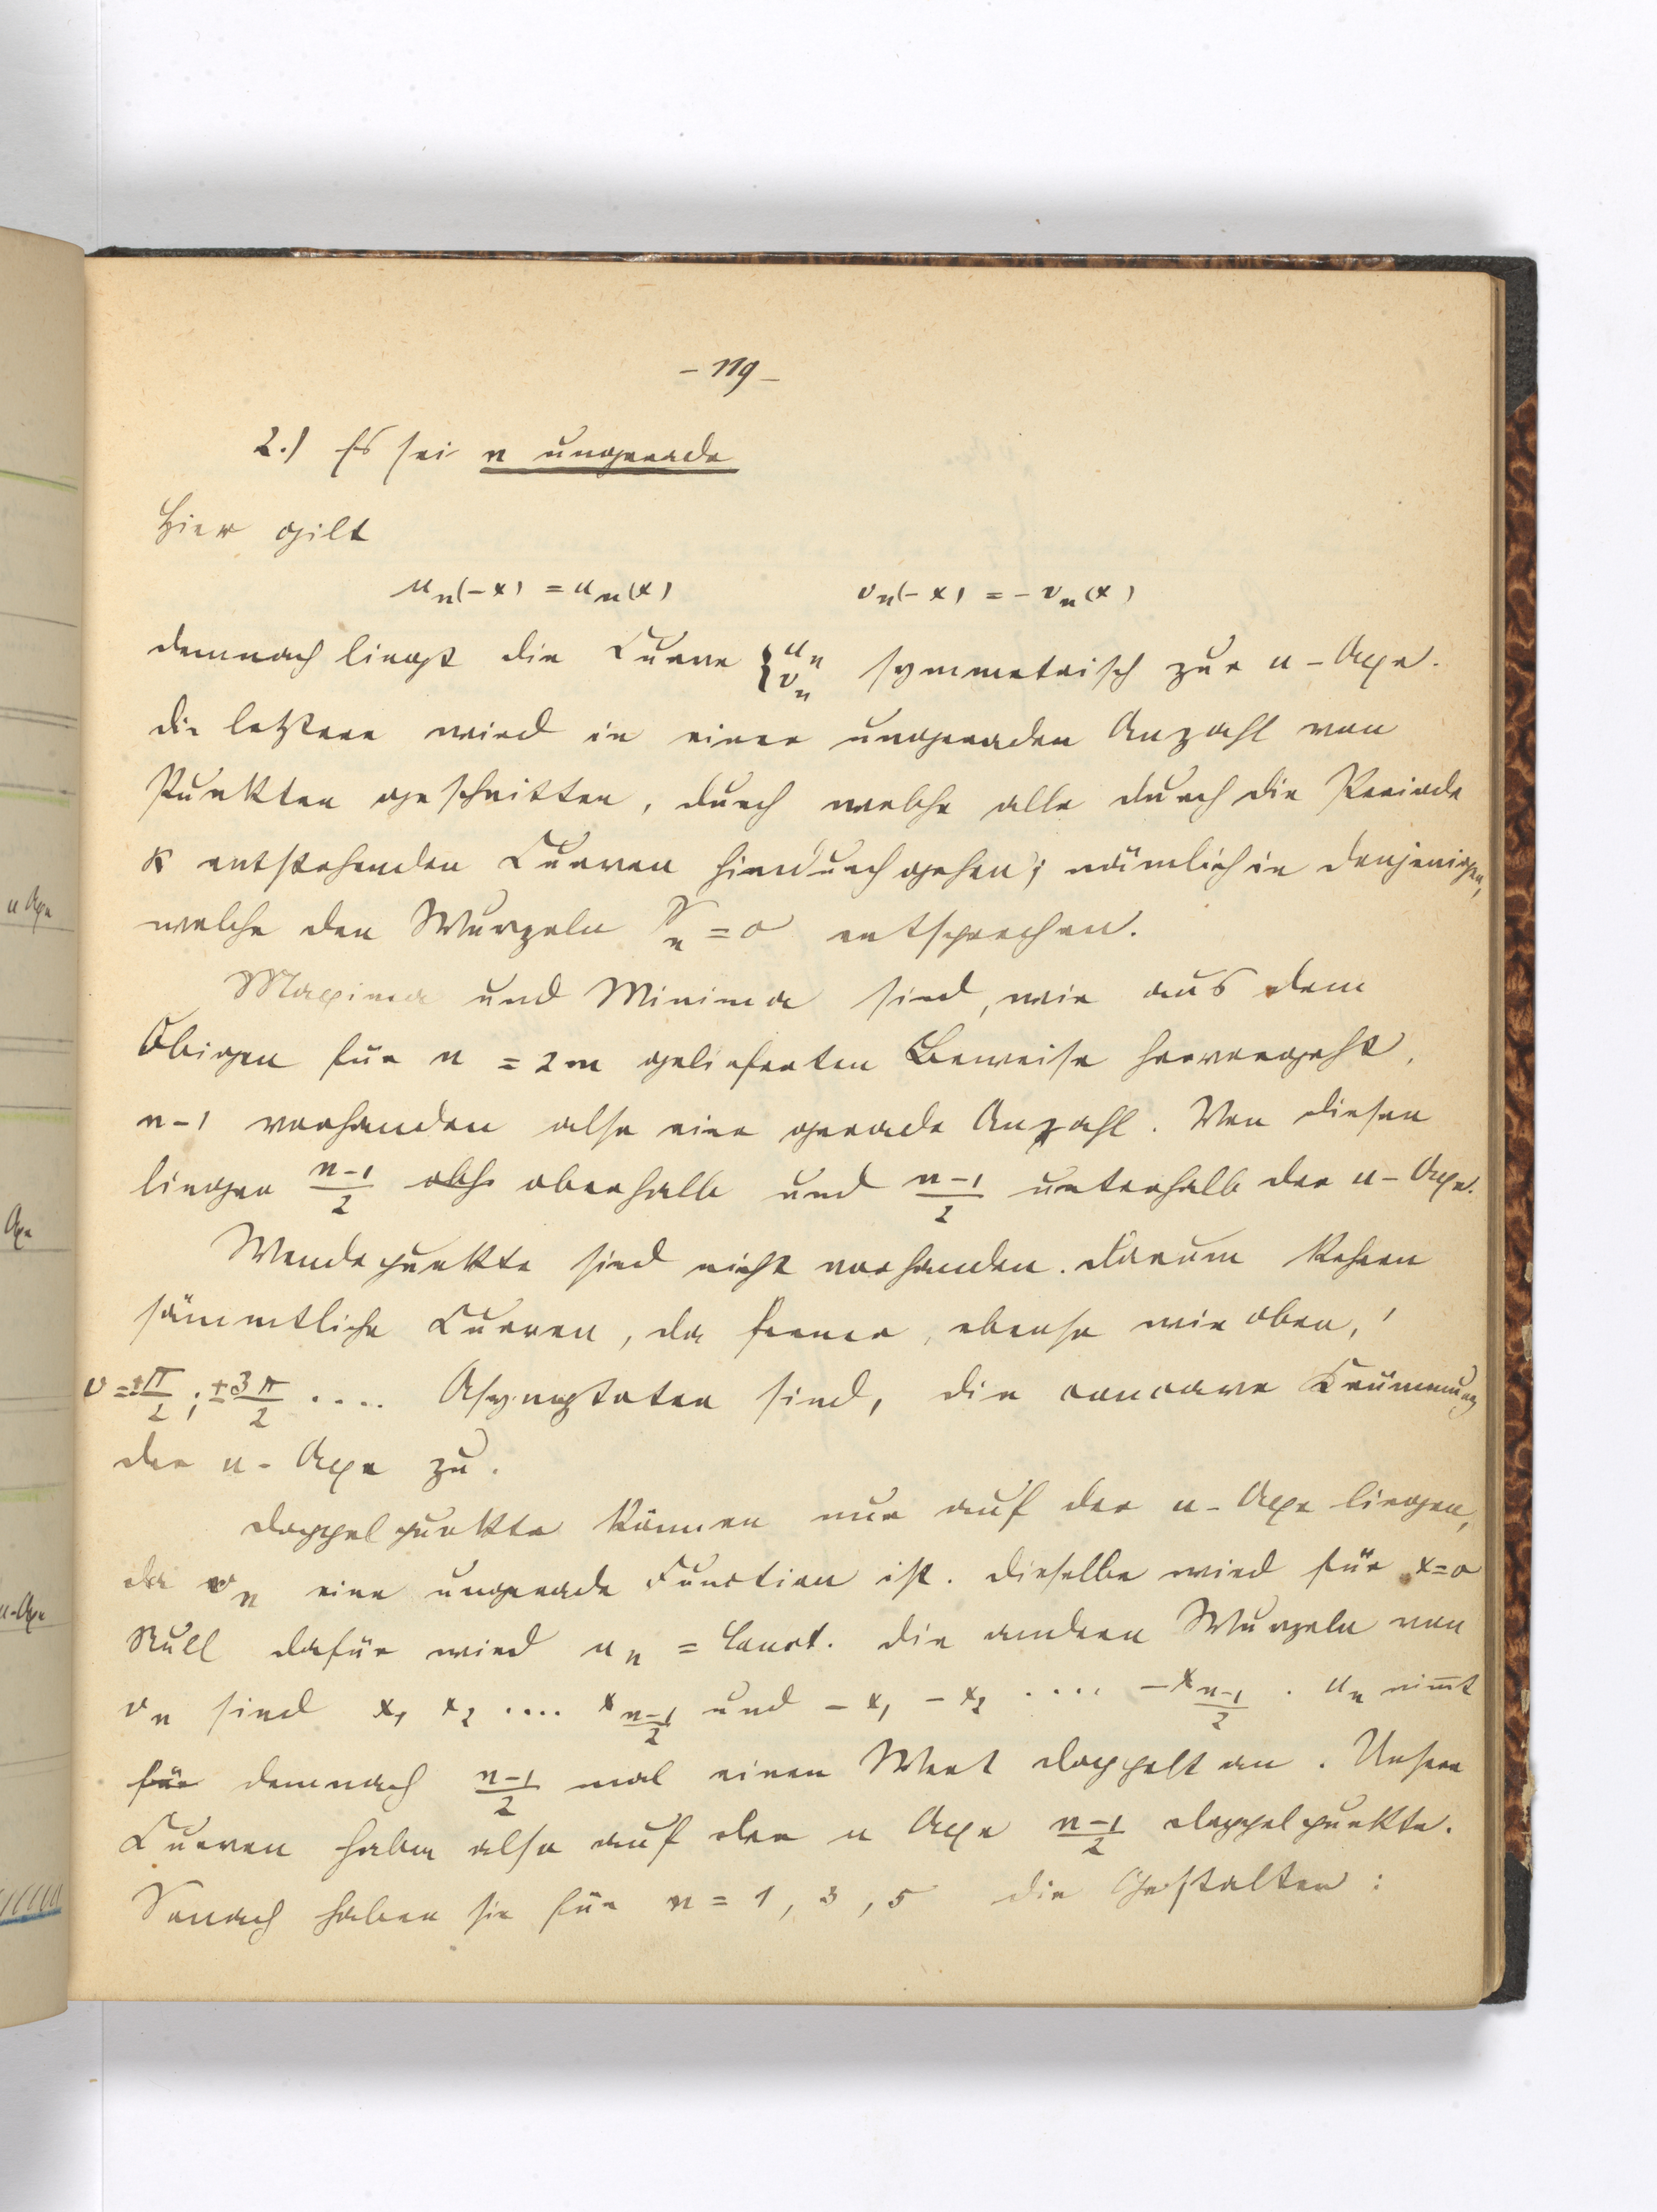 – 119 –
2.) Es sei n ungerade
Hier gilt
u_n(-x) = u_n(x) v_n(-x) = - v_n(x)
demnach liegt die Curve {u_n v_n symmetrisch zur u-Axe.
die letztere wird in einer ungeraden Anzahl von
Punkten geschnitten, durch welche alle durch die Periode
K entstehenden Curven hindurchgehen; nämlich in denjenigen,
welche den Wurzeln S_n = 0 entsprechen.
Maxima und Minima sind, wie aus dem
Obigen für n = 2m gelieferten Beweise hervorgeht,
n-1 vorhanden also eine gerade Anzahl. Von diesen
liegen n-1/2 oberhalb und n-1/2 unterhalb der u-Axe.
Wendepunkte sind nicht vorhanden. darum kehren
sämmtliche Curven, da ferner, ebenso wie oben,
v = ±π/2; ±3π/2 .... Asymptoten sind, die concave Krümmung
der u-Axe zu.
Doppelpunkte können nur auf der u-Axe liegen,
da v_n eine ungerade Function ist. dieselbe wird für x=0
Null dafür wird u_n = Const. die andern Wurzeln von
v_n sind x_1 x_2 .... x_{n-1/2} und -x_1 -x_2 .... -x_{n-1/2}. u_n nim̅t
für demnach n-1/2 mal einen Wert doppelt an. Unsere
Curven haben also auf der u Axe n-1/2 doppelpunkte.
Sonach haben sie für n = 1, 3, 5 die Gestalten:
u Axe
Axe
u-Axe